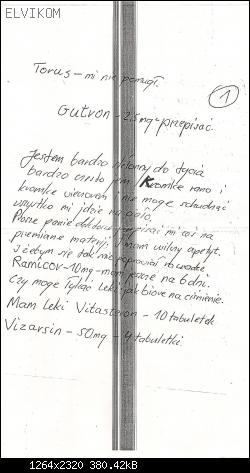 ELVIKOM
1
Torus - mi nie pomógł.
Gutron - 2,5mg - przepisać.
Jestem bardzo skłonny do tycia
bardzo mało jem Kromkę rano i
kromkę wieczorem i nie mogę schudnąć
wszystko mi idzie na ciało.
Panie doktorze przepisać mi coś na
przemianę materji, i mam wilczy apetyt.
i żebym się tak nie
Ramicor - 10mg - mam jeszcze na 6 dni.
czy mogę tylko leki jak biorę na ciśnienie.
Mam Leki Vitasteron - 10 tabuletek
Vizarsin - 50mg - 4 tabuletki
1264x2320 380.42kB